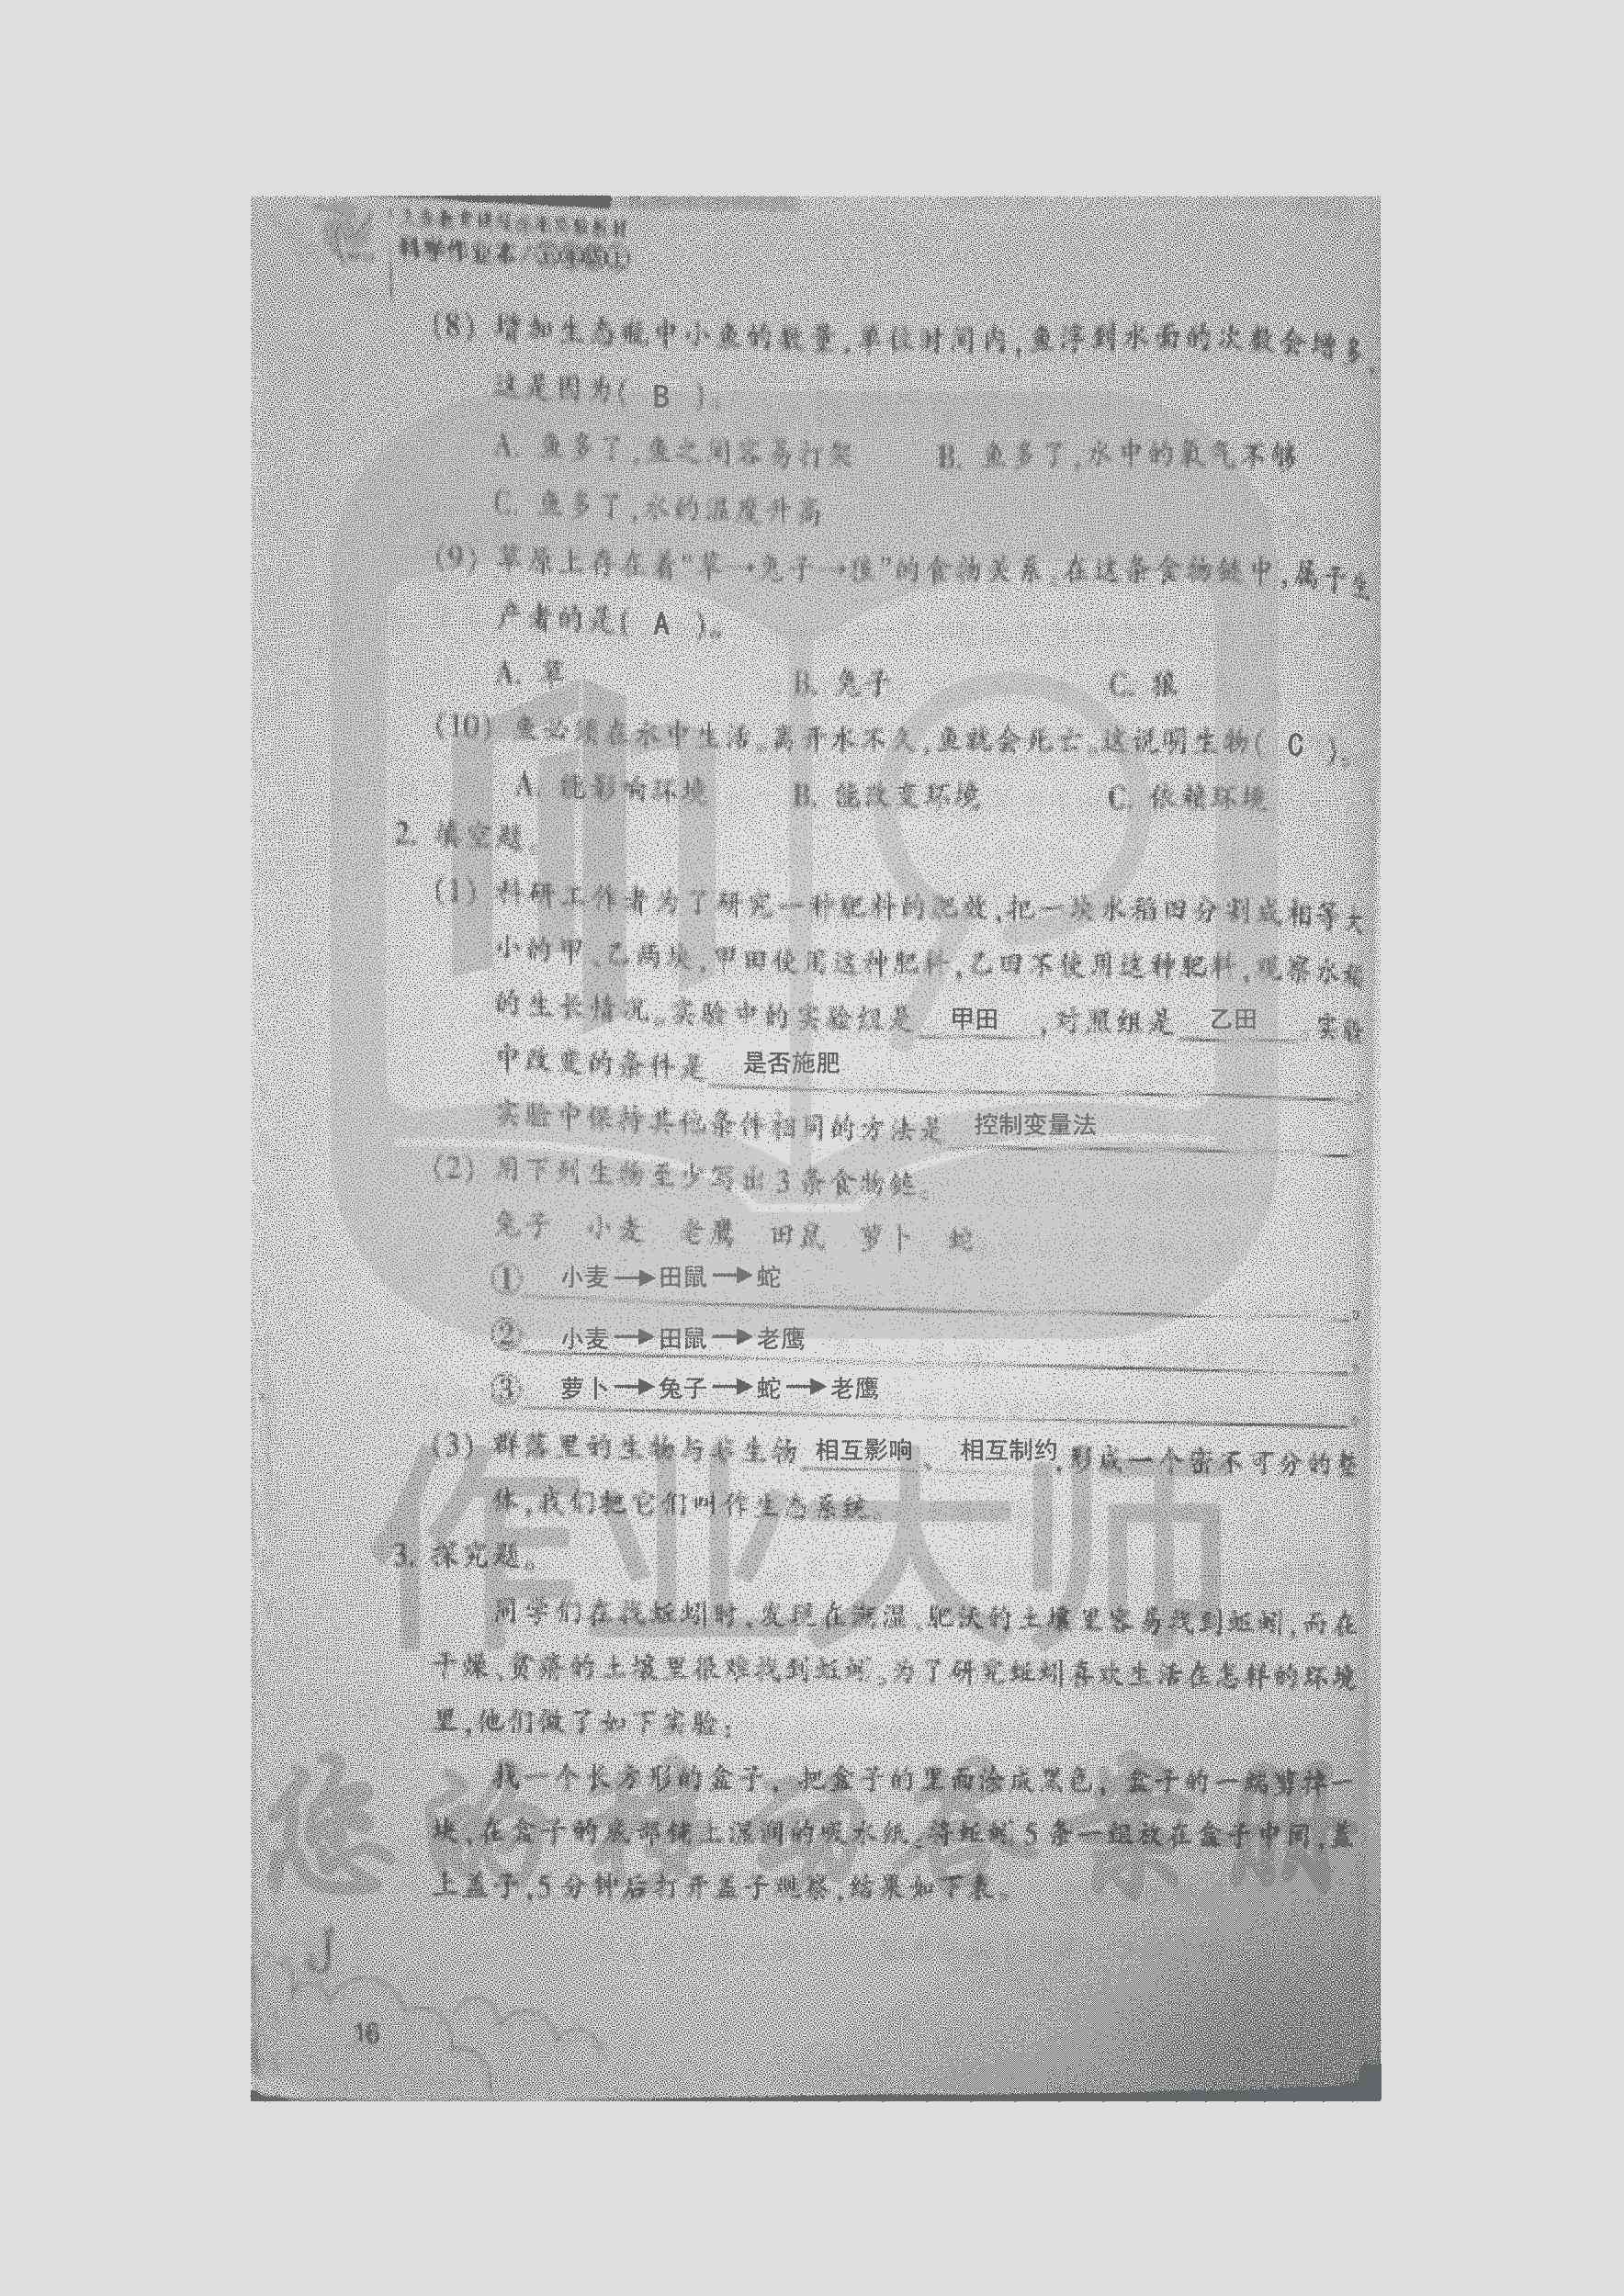 科学作业本
(8) 增加生态瓶中小鱼的数量,单位时间内,鱼浮到水面的次数会增多,
这是因为( B )。
A. 鱼多了,鱼之间容易打架 B. 鱼多了,水中的氧气不够
C. 鱼多了,水的温度升高
(9) 草原上存在着“草→兔子→狼”的食物关系。在这条食物链中,属于生
产者的是( A )。
A. 草 B. 兔子 C. 狼
(10) 鱼必须在水中生活,离开水不久,鱼就会死亡。这说明生物( C )。
A. 能影响环境 B. 能改变环境 C. 依赖环境
2. 填空题
(1) 科研工作者为了研究一种肥料的肥效,把一块水稻田分割成相等大
小的甲、乙两块,甲田使用这种肥料,乙田不使用这种肥料,观察水稻
的生长情况。实验中的实验组是 甲田 ,对照组是 乙田 实验
中改变的条件是 是否施肥
实验中保持其他条件相同的方法是 控制变量法
(2) 用下列生物至少写出 3 条食物链。
兔子 小麦 老鹰 田鼠 萝卜 蛇
① 小麦→田鼠→蛇
② 小麦→田鼠→老鹰
③ 萝卜→兔子→蛇→老鹰
(3) 群落里的生物与非生物 相互影响 、 相互制约 ,形成一个密不可分的整
体,我们把它们叫作生态系统。
3. 探究题。
同学们在找蚯蚓时,发现在潮湿、肥沃的土壤里容易找到蚯蚓,而在
干燥、贫瘠的土壤里很难找到蚯蚓。为了研究蚯蚓喜欢生活在怎样的环境
里,他们做了如下实验:
找一个长方形的盒子, 把盒子的里面涂成黑色, 盒子的一端剪掉一
块,在盒子的底部铺上湿润的吸水纸。将蚯蚓 5 条一组放在盒子中间,盖
上盖子,5 分钟后打开盖子观察,结果如下表。
16
作业大师